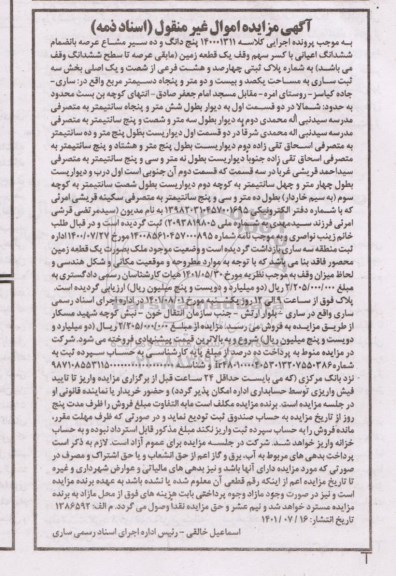 آگهی مزایده اموال غیر منقول (اسناد ذمه)
به موجب پرونده اجرایی کلاسه ۱۴۰۰۰۱۳۱۱ پنج دانگ و ده سیر مشاع عرصه بانضمام
ششدانگ اعیانی با کسر سهم وقف یک قطعه زمین (مابقی عرصه تا سطح ششدانگ وقف
می باشد) به شماره پلاک ثبتی چهارصد و هشت فرعی از شصت و یک اصلی بخش سه
ثبت ساری به مساحت یکصد و بیست و دو متر و پنجاه دسیمتر مربع واقع در: ساری-
جاده کیاسر- روستای امره- مقابل مسجد امام جعفر صادق- انتهای کوچه بن بست محدود
به حدود: شمالا در دو قسمت اول به دیوار بطول شش متر و پنجاه سانتیمتر به متصرفی
مدرسه سیدنبی اله محمدی دوم به دیوار بطول سه متر و شصت و پنج سانتیمتر به متصرفی
مدرسه سیدنبی اله محمدی شرقا در دو قسمت اول دیواریست بطول پنج متر و ده سانتیمتر
به متصرفی اسحاق تقی زاده دوم دیواریست بطول پنج متر و هشتاد و پنج سانتیمتر به
متصرفی اسحاق تقی زاده جنوبا دیواریست بطول نه متر و سی و پنج سانتیمتر به متصرفی
سیداحمد قریشی غربا در سه قسمت که قسمت دوم آن جنوبی است اول درب و دیواریست
بطول چهار متر و چهل سانتیمتر به کوچه دوم دیواریست بطول شصت سانتیمتر به کوچه
سوم (به سیم خاردار) بطول ده متر و سی و پنج سانتیمتر به متصرفی سکینه قریشی امرئی
که با شماره دفتر الکترونیکی به نام مدیون (سیدمرتضی قرشی
امرئی فرزند سیدمهدی به شماره ملی ۲۰۹۳۸۱۹۸۰۵) ثبت گردیده است و در قبال طلب
خانم زینب نواصری و به موجب نامه شماره مورخ ۱۴۰۰/۰۷/۲۷ اداره
ثبت منطقه سه ساری بازداشت گردیده است و وضعیت موجود ملک بصورت یک قطعه زمین
محصور فاقد بنا می باشد که با توجه به موارد مطروحه و موقعیت مکانی و شکل هندسی و
لحاظ میزان وقف به موجب نظریه مورخ ۱۴۰۱/۰۵/۳۰ هیات کارشناسان رسمی دادگستری به
مبلغ ۲/۲۰۵/۰۰۰/۰۰۰ ریال (دو میلیارد و دویست و پنج میلیون ریال) ارزیابی گردیده است.
پلاک فوق از ساعت ۹ الی ۱۲ روز یکشنبه مورخ ۱۴۰۱/۰۸/۰۱ در اداره اجرای اسناد رسمی
ساری واقع در ساری - بلوار ارتش - جنب سازمان انتقال خون - نبش کوچه شهید مسکار
از طریق مزایده به فروش می رسد. مزایده از مبلغ ۲/۲۰۵/۰۰۰/۰۰۰ ریال (دو میلیارد و
دویست و پنج میلیون ریال) شروع و به بالاترین قیمت پیشنهادی فروخته می شود. شرکت
در مزایده منوط به پرداخت ده درصد از مبلغ پایه کارشناسی به حساب سپرده ثبت به
شماره و شناسه
نزد بانک مرکزی (که می بایست حداقل ۲۴ ساعت قبل از برگزاری مزایده واریز تا تایید
فیش واریزی توسط حسابداری اداره امکان پذیر گردد) و حضور خریدار یا نماینده قانونی او
در جلسه مزایده است. برنده مزایده مکلف است مابه التفاوت مبلغ فروش را ظرف مدت پنج
روز از تاریخ مزایده به حساب صندوق ثبت تودیع نماید و در صورتی که ظرف مهلت مقرر،
مانده فروش را به حساب سپرده ثبت واریز نکند مبلغ مذکور قابل استرداد نبوده و به حساب
خزانه واریز خواهد شد. شرکت در جلسه مزایده برای عموم آزاد است. لازم به ذکر است
پرداخت بدهی های مربوط به آب، برق و گاز اعم از حق انشعاب و یا حق اشتراک و مصرف در
صورتی که مورد مزایده دارای آنها باشد و نیز بدهی های مالیاتی و عوارض شهرداری و غیره
تا تاریخ مزایده اعم از اینکه رقم قطعی آن معلوم شده یا نشده باشد به عهده برنده مزایده
است و نیز در صورت وجود مازاد وجوه پرداختی بابت هزینه های فوق از محل مازاد به برنده
مزایده مسترد خواهد شد و نیم عشر و حق مزایده نقدا وصول می گردد. م الف: ۱۳۸۶۵۹۲
تاریخ انتشار: ۱۶ / ۰۷ / ۱۴۰۱
اسماعیل خالقی - رئیس اداره اجرای اسناد رسمی ساری